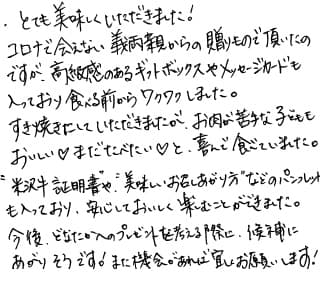 ・とても美味しくいただきました！
コロナで会えない義両親からの贈りもので頂いたの
ですが、高級感のあるギフトボックスやメッセージカードも
入っており食べる前からワクワクしました。
すき焼きにしていただきましたが、お肉が苦手な子どもも
おいしい♡まだたべたい♡と、喜んで食べていました。
"米沢牛証明書"や"美味しいお召しあがり方"などのパンフレット
も入っており、安心しておいしく楽しむことができました。
今後、どなたかへのプレゼントを考える際に、候補に
あがりそうです！また機会があれば宜しくお願いします！